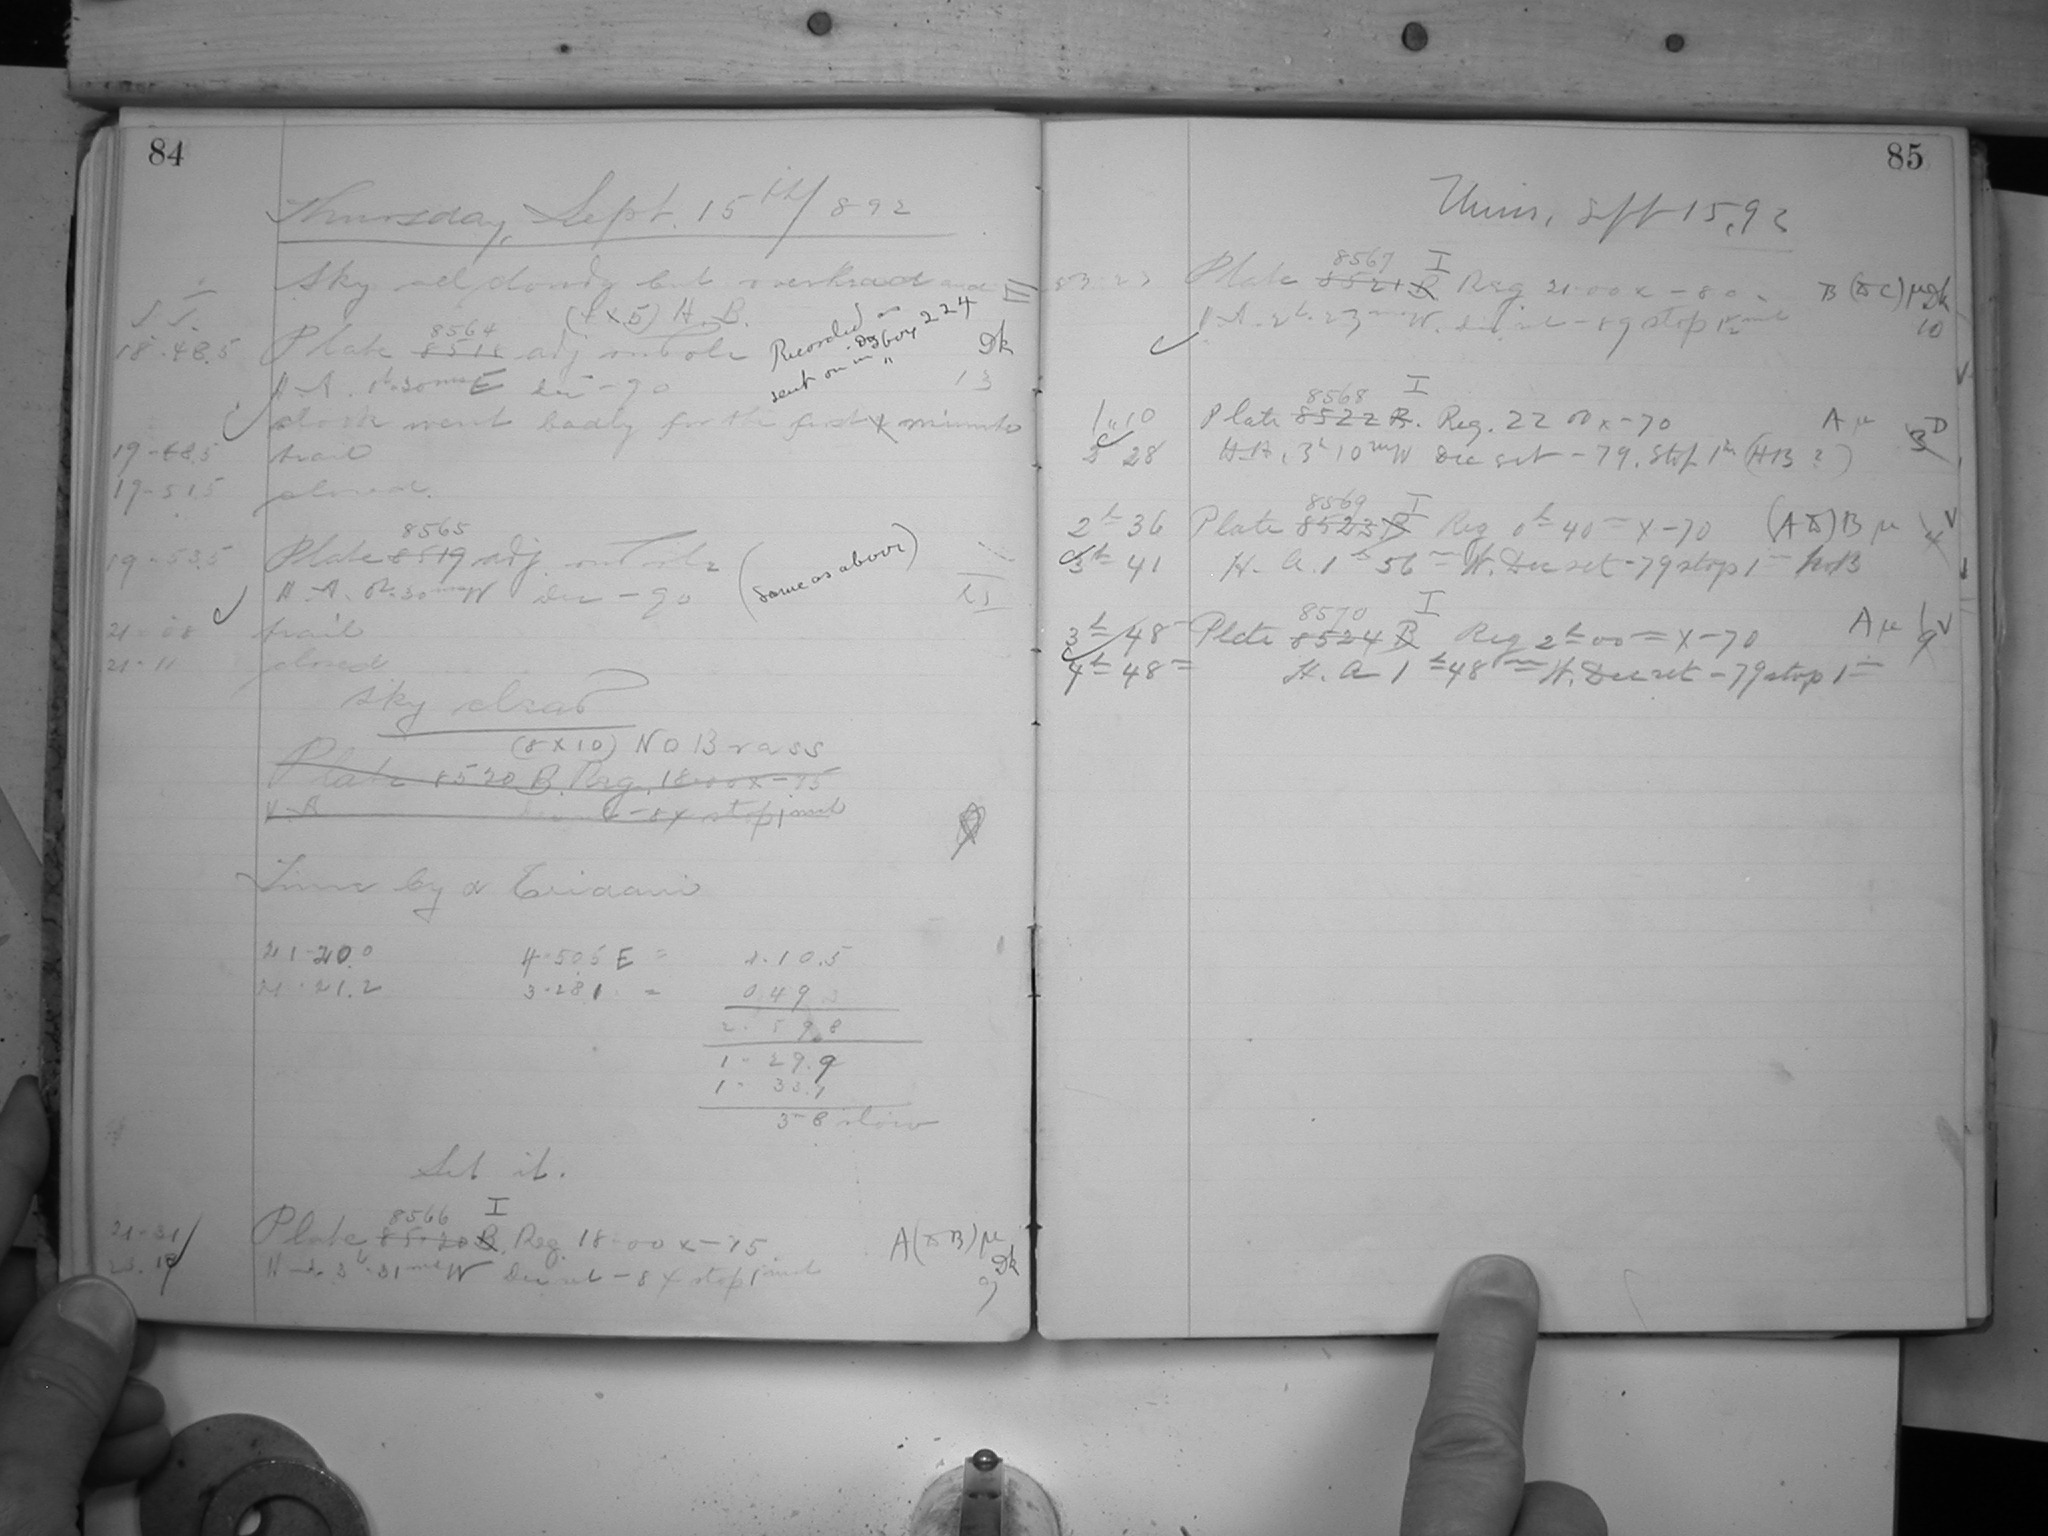 84
Thursday, Sept. 15th/892
Sky all cloudy but overhead and
(4x5) H. B.
8564
18.48.5 Plate 8518 adj outside Dk
Recorded in Dgboy 224
sent on in "
H. A. 0h.30m E Dec -90 13
clock went badly for the first x minutes
19-48.5 trail
19-51.5 closed.
8565
19-53.5 Plate 8519 adj. outside (same as above)
H. A. 0h.30m W Dec -90
21-08 trail
21-11 closed
sky clear
(8x10) No Brass
Plate 8520 B. Reg. 18.00 x-75
H. A. -84 stop 1 inch
Time by α Eridani
21-20.0 4.505 E = 2.10.5
21.21.2 3.281 = 0.49
2.59.8
1-29.9
1-33.7
3-8 slow
Set it.
8566 I
21-31 Plate 8520 B. Reg. 18.00 x-75 A(DB)μ
H.A. 3h.31m W Dec set -84 stop 1 inch Dk
9
85
Thurs, Sept 15, 92
8567 I
23 23 Plate 8521 B Reg 21.00 x -80. B (DC) μ Dk
H.A. 2h.23m W. Dec set -89 stop 1 inch 10
8568 I
1..10 Plate 8522 B. Reg. 22 00 x-70 A μ D
3 28 H.A. 3h 10m W Dec set -79. Stop 1in (HB ?) 3
8569 I
2h 36 Plate 8523 B Reg 0h 40m x-70 (AD)B μ V
3h 41 H. A. 1h 56m W. Dec set -79 stop 1in no B 4
8570 I
3h 48m Plate 8524 B Reg 2h 00m x-70 A μ V
4h 48m H. A 1h 48m W. Dec set -79 stop 1in 9